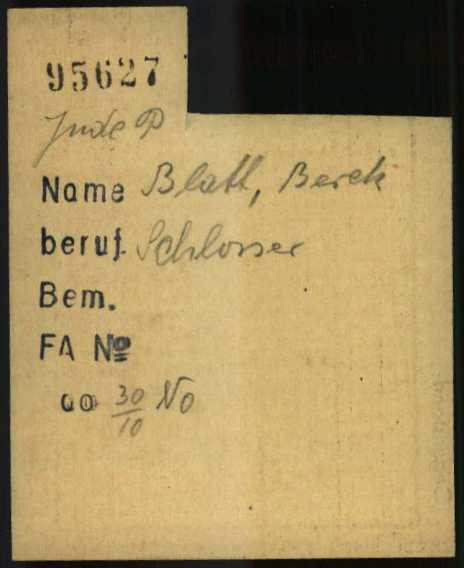 95627
Jude P
Name Blatt, Berek
beruf. Schlosser
Bem.
FA №
30/10 No